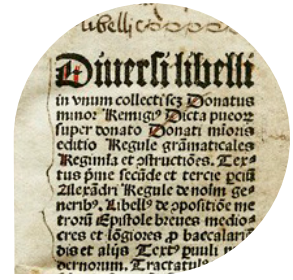 libelli
Diuersi libelli
in vnum collecti scz Donatus
minor Remigꝰ Dicta pueoꝝ
super donato Donati mioris
editio Regule grãmaticales
Regimĩa et ↄstructiões. Tex⸗
tus pṁe secũde et tercie
Alexãdri Regule de noĩm ge⸗
neribꝰ. Libellꝰ de ↄpositiõe me
trorũ Epistole breues medio⸗
cres et lõgiores ꝓ baccalariꝰ
dis et alijs Textꝰ puuli
dernorum. Tractatul